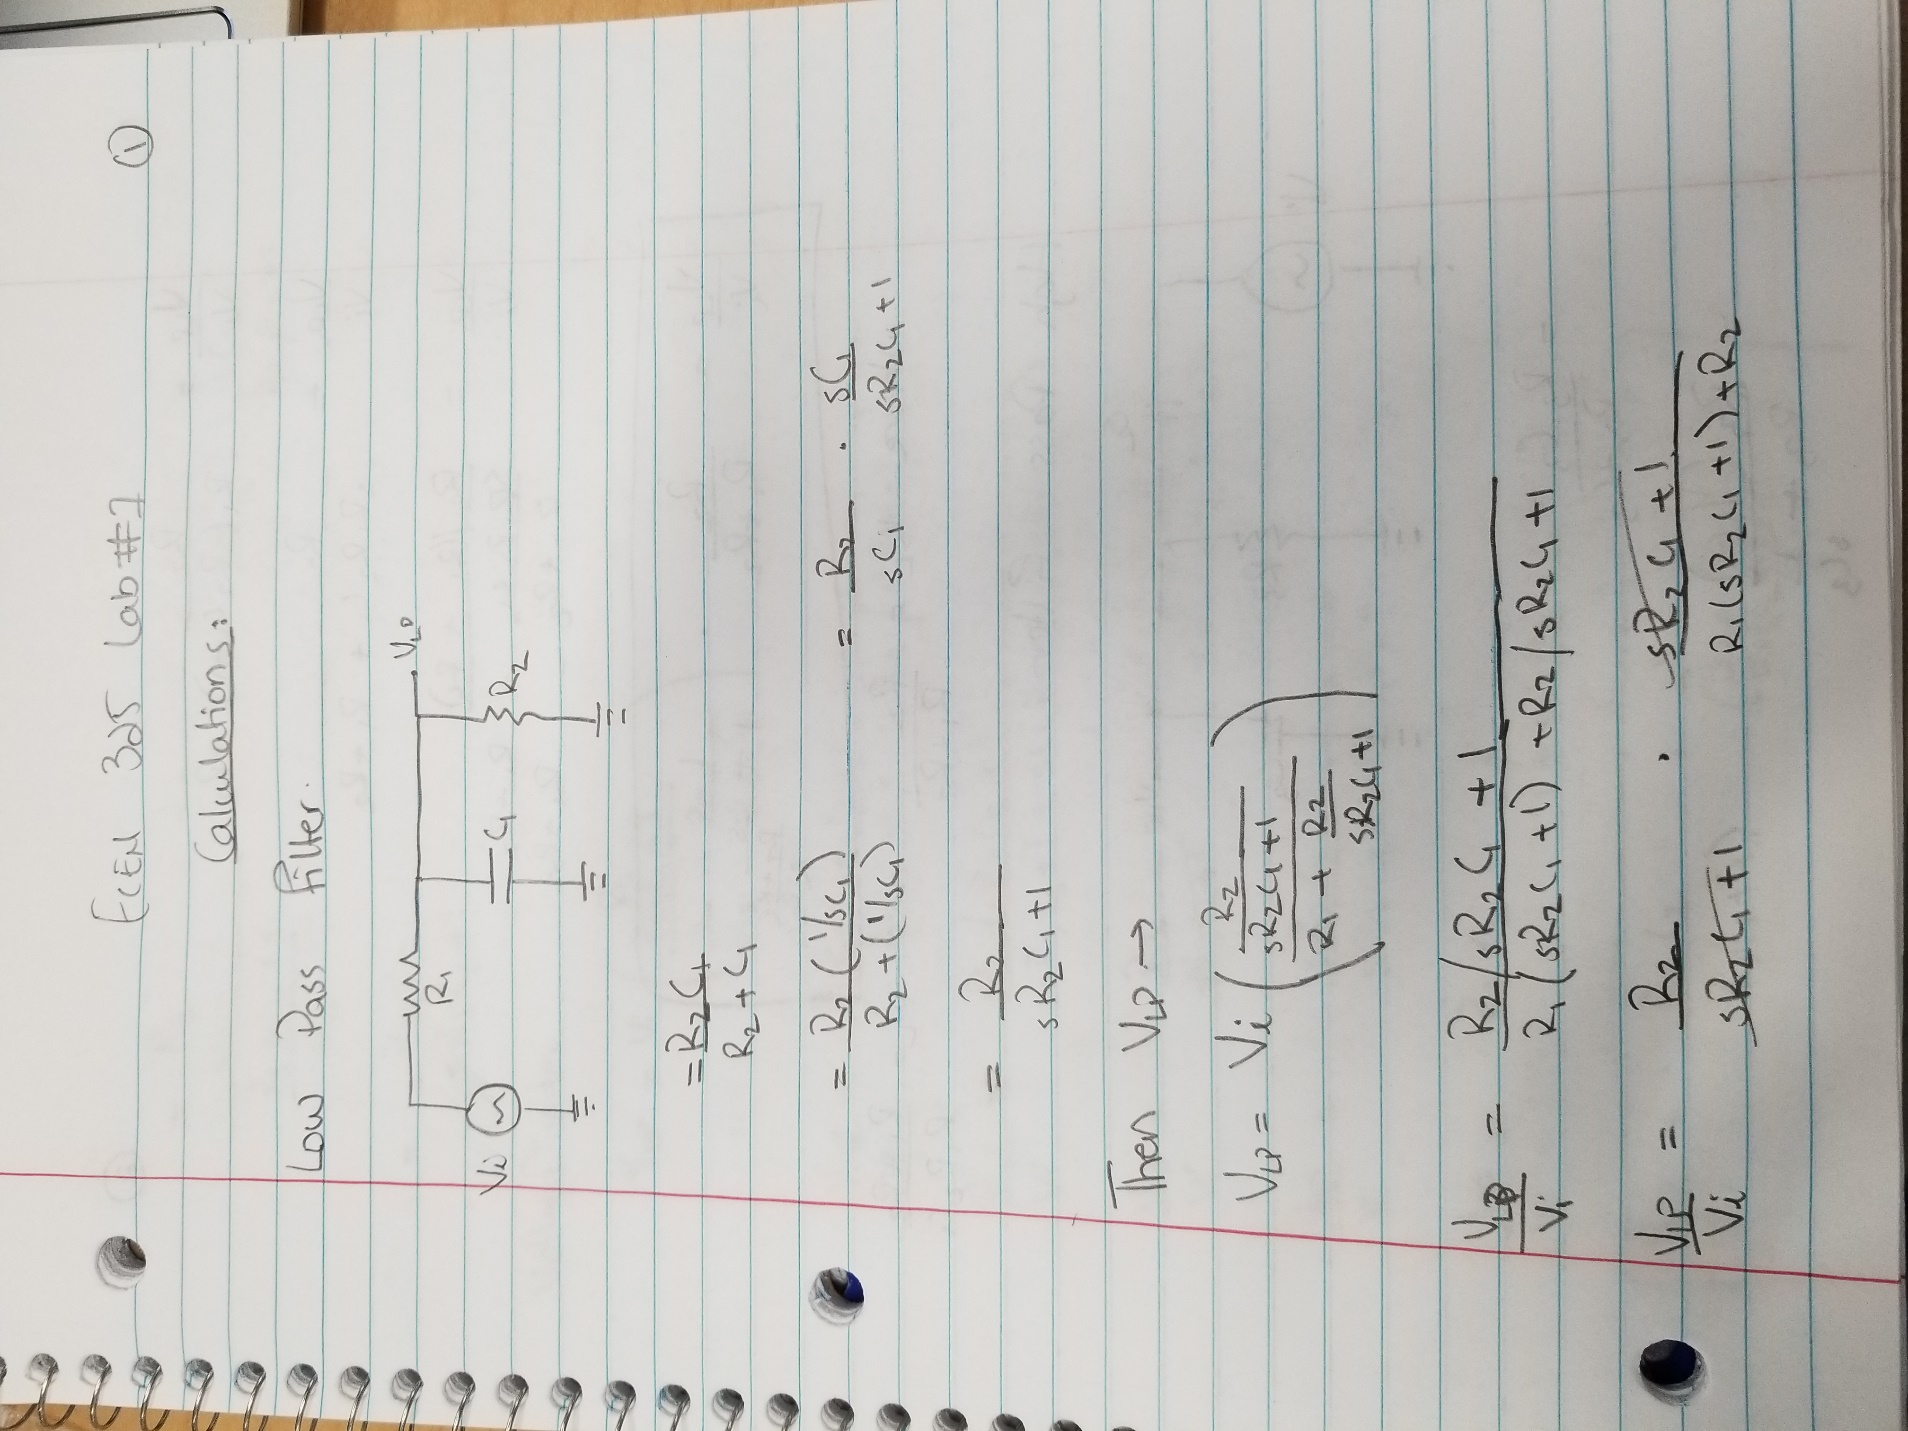 ECEN 325 Lab #7 ①
Calculations:
Low Pass Filter.
Vi R₁ C₁ R₂ V_LP
= R₂C₁ / R₂ + C₁
= R₂ (1/sC₁) / R₂ + (1/sC₁) = R₂ / sC₁ · sC₁ / sR₂C₁ + 1
= R₂ / sR₂C₁ + 1
Then V_LP →
V_LP = Vi ( R₂ / sR₂C₁+1 / R₁ + R₂ / sR₂C₁+1 )
V_LP / Vi = R₂ / sR₂C₁ + 1 / R₁ (sR₂C₁ + 1) + R₂ / sR₂C₁ + 1
V_LP / Vi = R₂ / sR₂C₁ + 1 · sR₂C₁ + 1 / R₁(sR₂C₁ + 1) + R₂